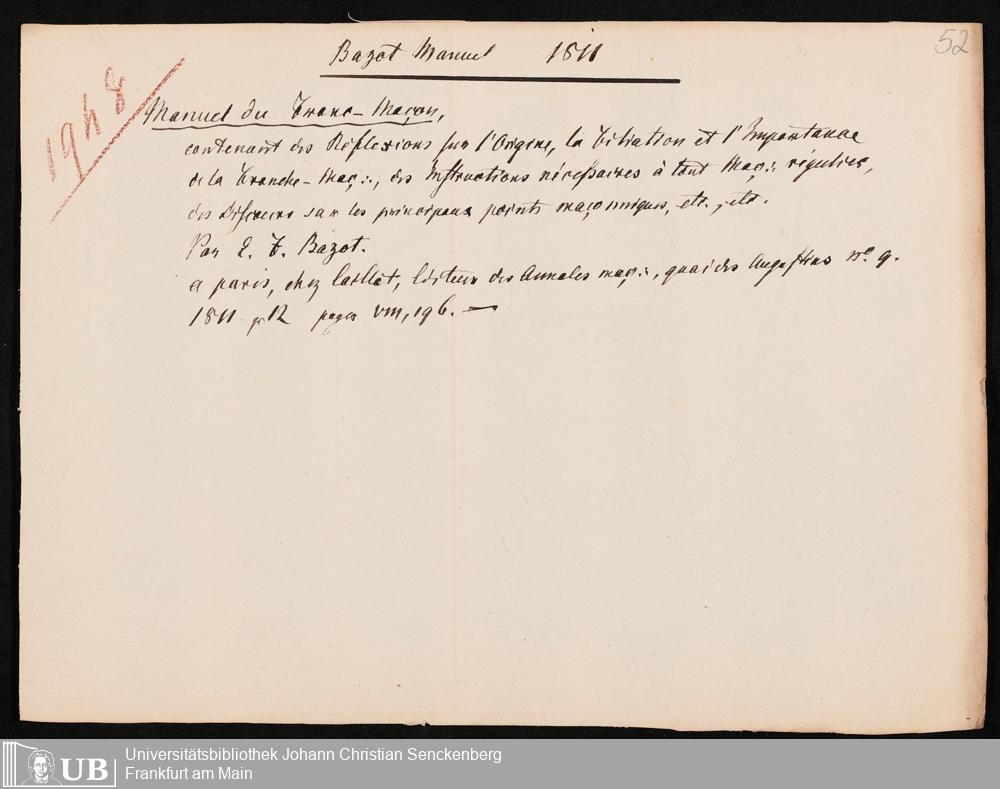 52
Bazot Manuel 1811
1948
Manuel du Franc-Maçon,
contenant des Réflexions sur l'Origine, la Filiation et l'Importance
de la Franche-Maç∴, des Instructions nécessaires à tout Maç∴ régulier,
des Discours sur les principaux points maçonniques, etc., etc.
Par E. F. Bazot.
a paris, chez Caillot, Editeur des Annales maç∴, quai des Augustins n° 9.
1811 12 pages VIII, 196. —
UB Universitätsbibliothek Johann Christian Senckenberg
Frankfurt am Main